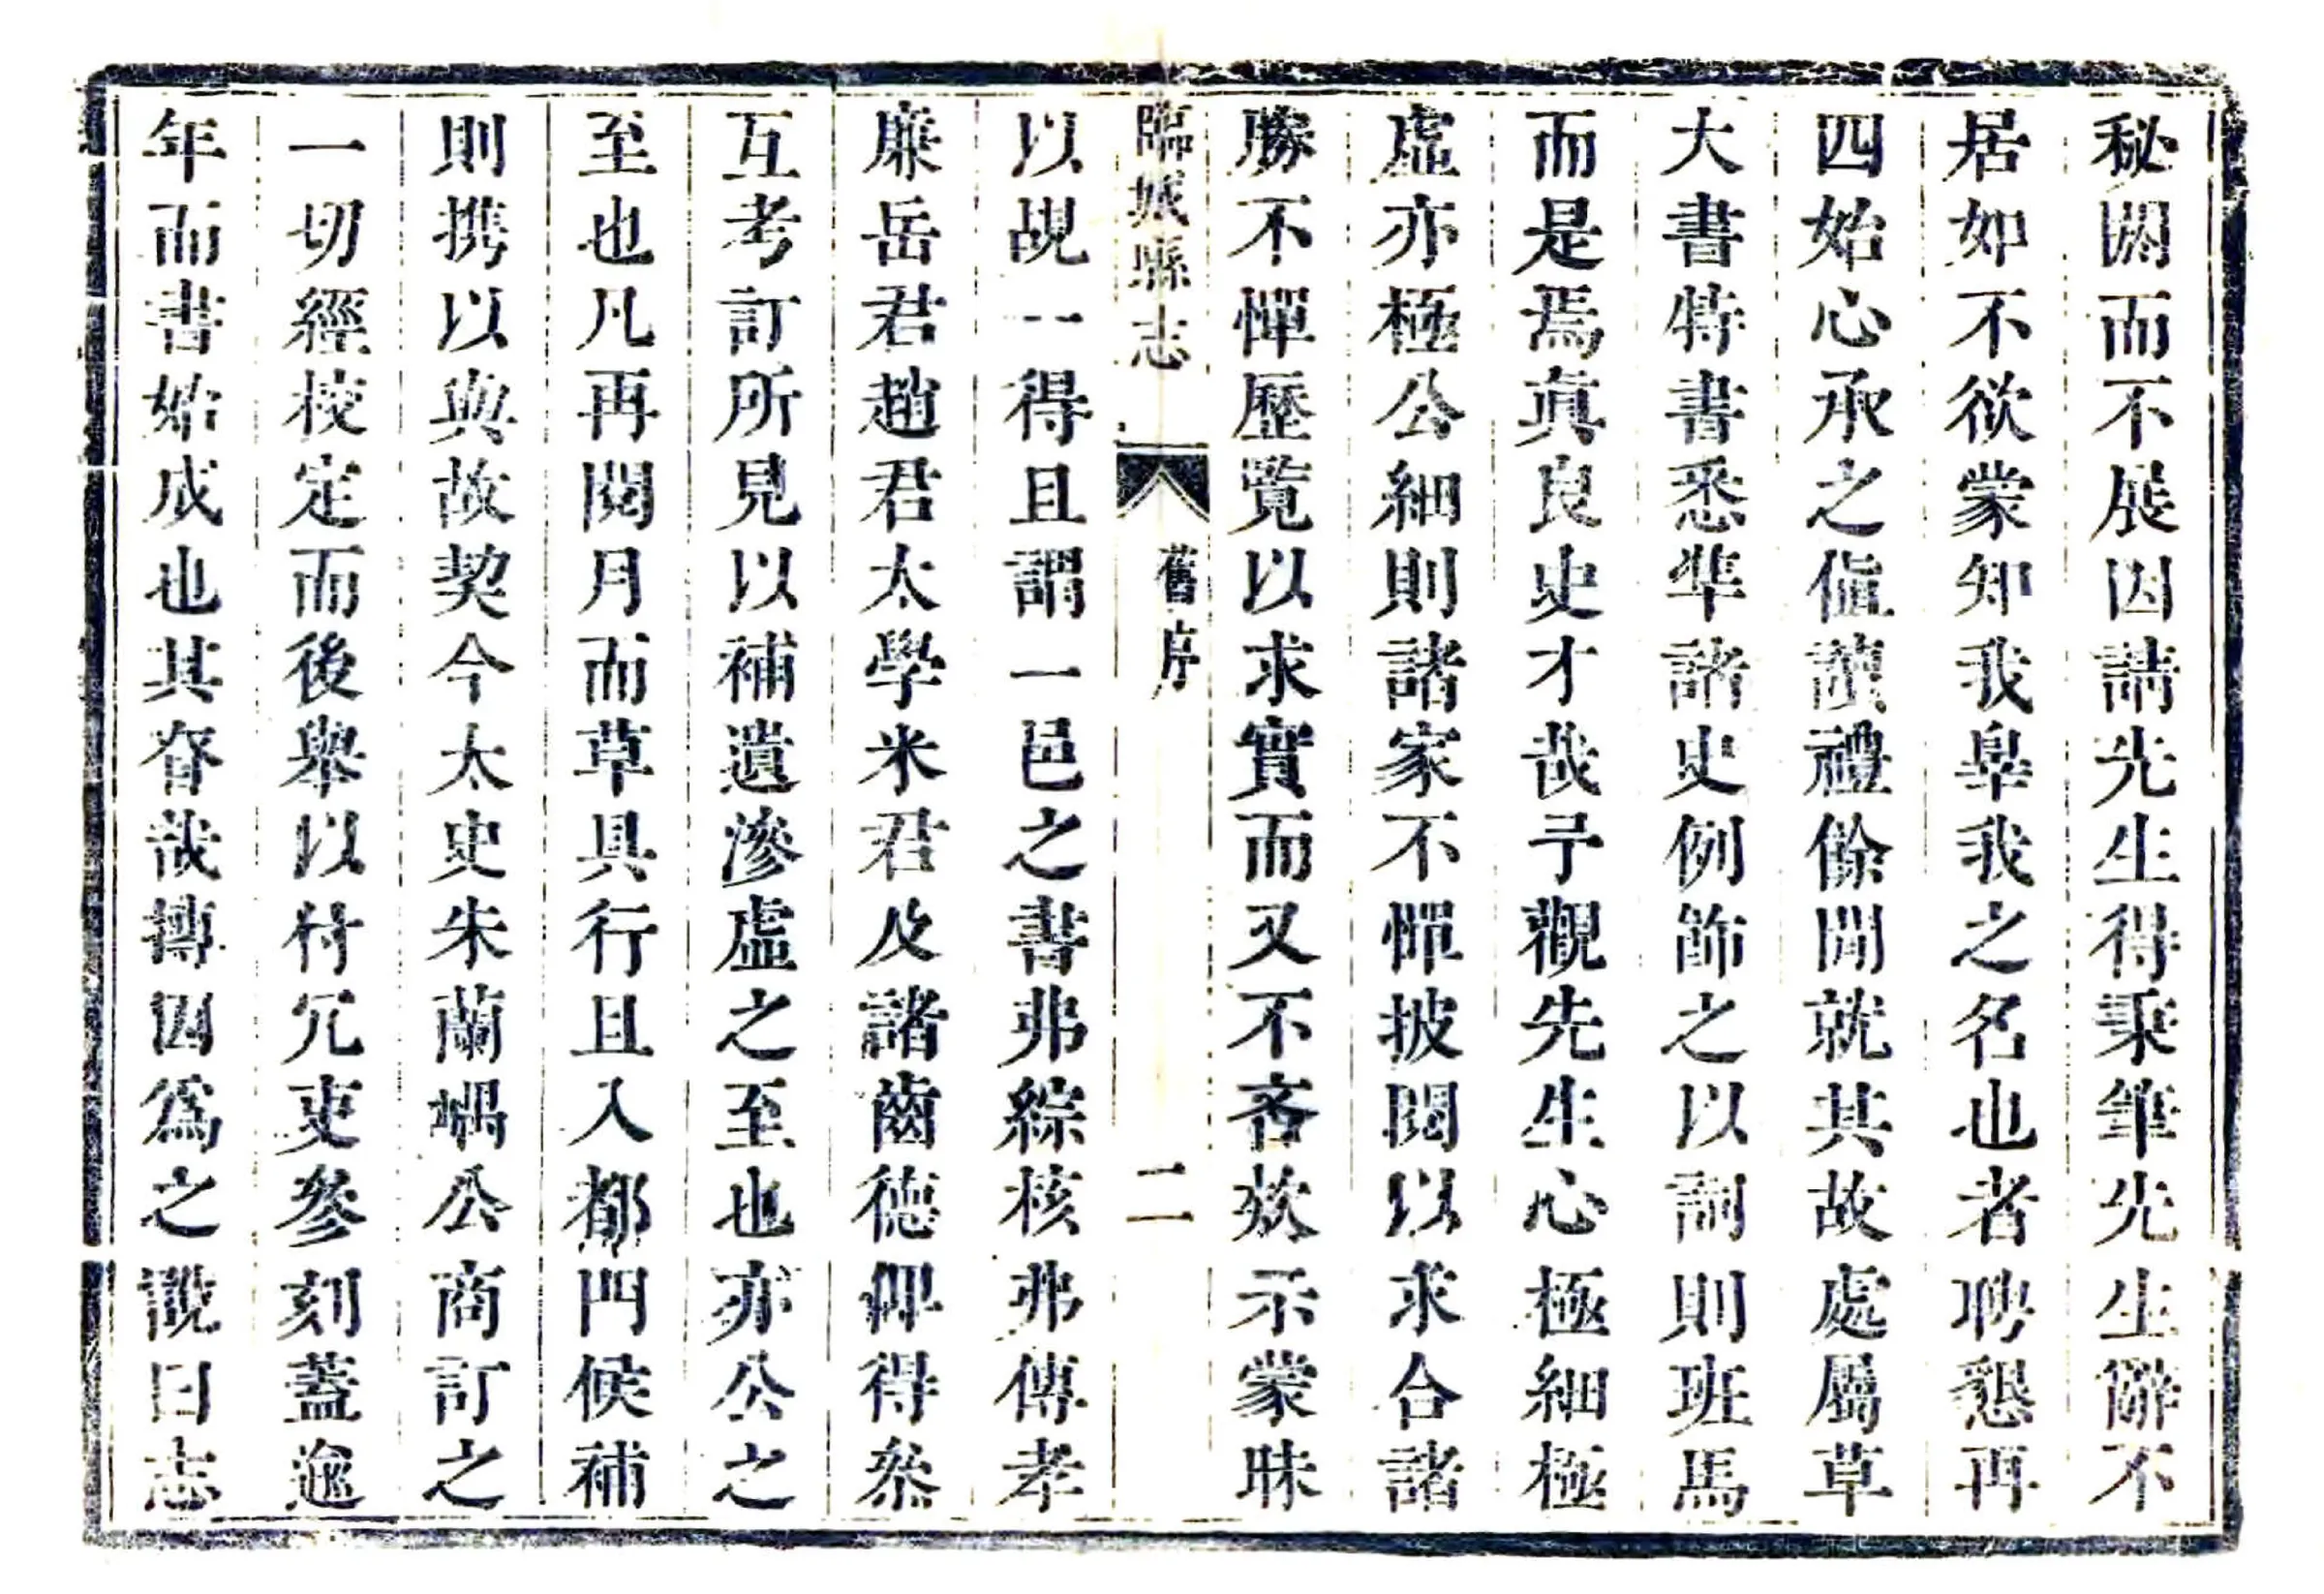 秘閟而不展因請先生得秉筆先生辭不
居如不欲蒙知我辠我之名也者聘懇再
四始心承之值讀禮餘閒就其故處屬草
大書特書悉準諸史例飾之以詞則班馬
而是焉眞良史才哉予觀先生心極細極
虛亦極公細則諸家不憚披閱以求合諸
勝不憚歷覽以求實而又不吝欬示蒙昧
臨城縣志
舊序
二
以覘一得且謂一邑之書弗綜核弗傳孝
廉岳君趙君太學米君及諸齒德仰得叅
互考訂所見以補遺滲虛之至也亦公之
至也凡再閱月而草具行且入都門候補
則携以與故契今太史朱蘭嵎公商訂之
一切經校定而後舉以付冗吏參刻蓋逾
年而書始成也其眘哉摶因為之說曰志